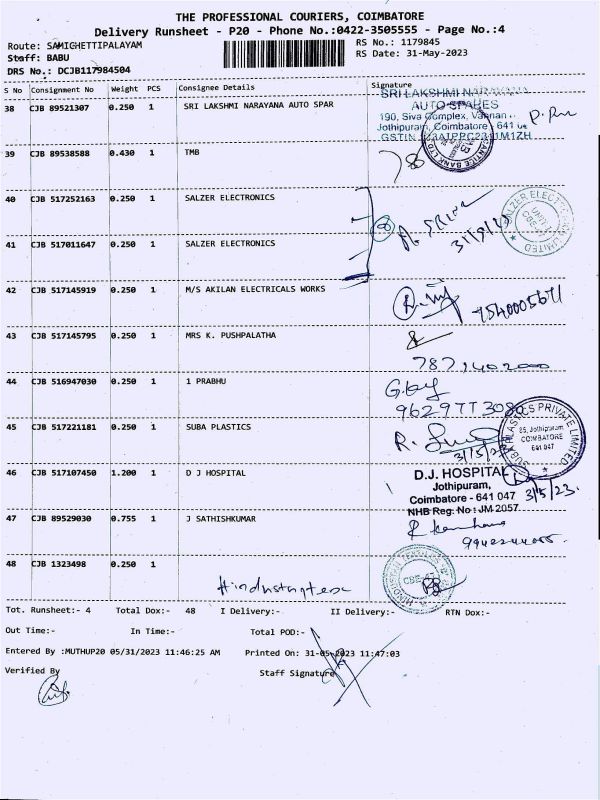 THE PROFESSIONAL COURIERS, COIMBATORE
Delivery Runsheet - P20 - Phone No.:0422-3505555 - Page No.:4
Route: SAMICHETTIPALAYAM
RS No.: 1179845
Staff: BABU
RS Date: 31-May-2023
DRS No.: DCJB117984504
S No Consignment No Weight PCS Consignee Details Signature
38 CJB 89521307 0.250 1 SRI LAKSHMI NARAYANA AUTO SPAR
SRI LAKSHMI NARAYANA
AUTO SPARES
190, Siva Complex,
Jothipuram, Coimbatore - 641
GSTIN
39 CJB 89538588 0.430 1 TMB
78
40 CJB 517252163 0.250 1 SALZER ELECTRONICS
SALZER ELECTRONICS LIMITED
41 CJB 517011647 0.250 1 SALZER ELECTRONICS
42 CJB 517145919 0.250 1 M/S AKILAN ELECTRICALS WORKS
43 CJB 517145795 0.250 1 MRS K. PUSHPALATHA
44 CJB 516947030 0.250 1 1 PRABHU
45 CJB 517221181 0.250 1 SUBA PLASTICS
SUBA PLASTICS PRIVATE LIMITED
85, Jothipuram,
COIMBATORE
641 047
31/5/23
46 CJB 517107450 1.200 1 D J HOSPITAL
D.J. HOSPITAL
Jothipuram,
Coimbatore - 641 047
NHB Reg. No : JM 2057
31/5/23.
47 CJB 89529030 0.755 1 J SATHISHKUMAR
48 CJB 1323498 0.250 1
Hindustantex
Tot. Runsheet:- 4 Total Dox:- 48 I Delivery:- II Delivery:- RTN Dox:-
Out Time:- In Time:- Total POD:-
Entered By :MUTHUP20 05/31/2023 11:46:25 AM Printed On: 31-05-2023 11:47:03
Verified By Staff Signature